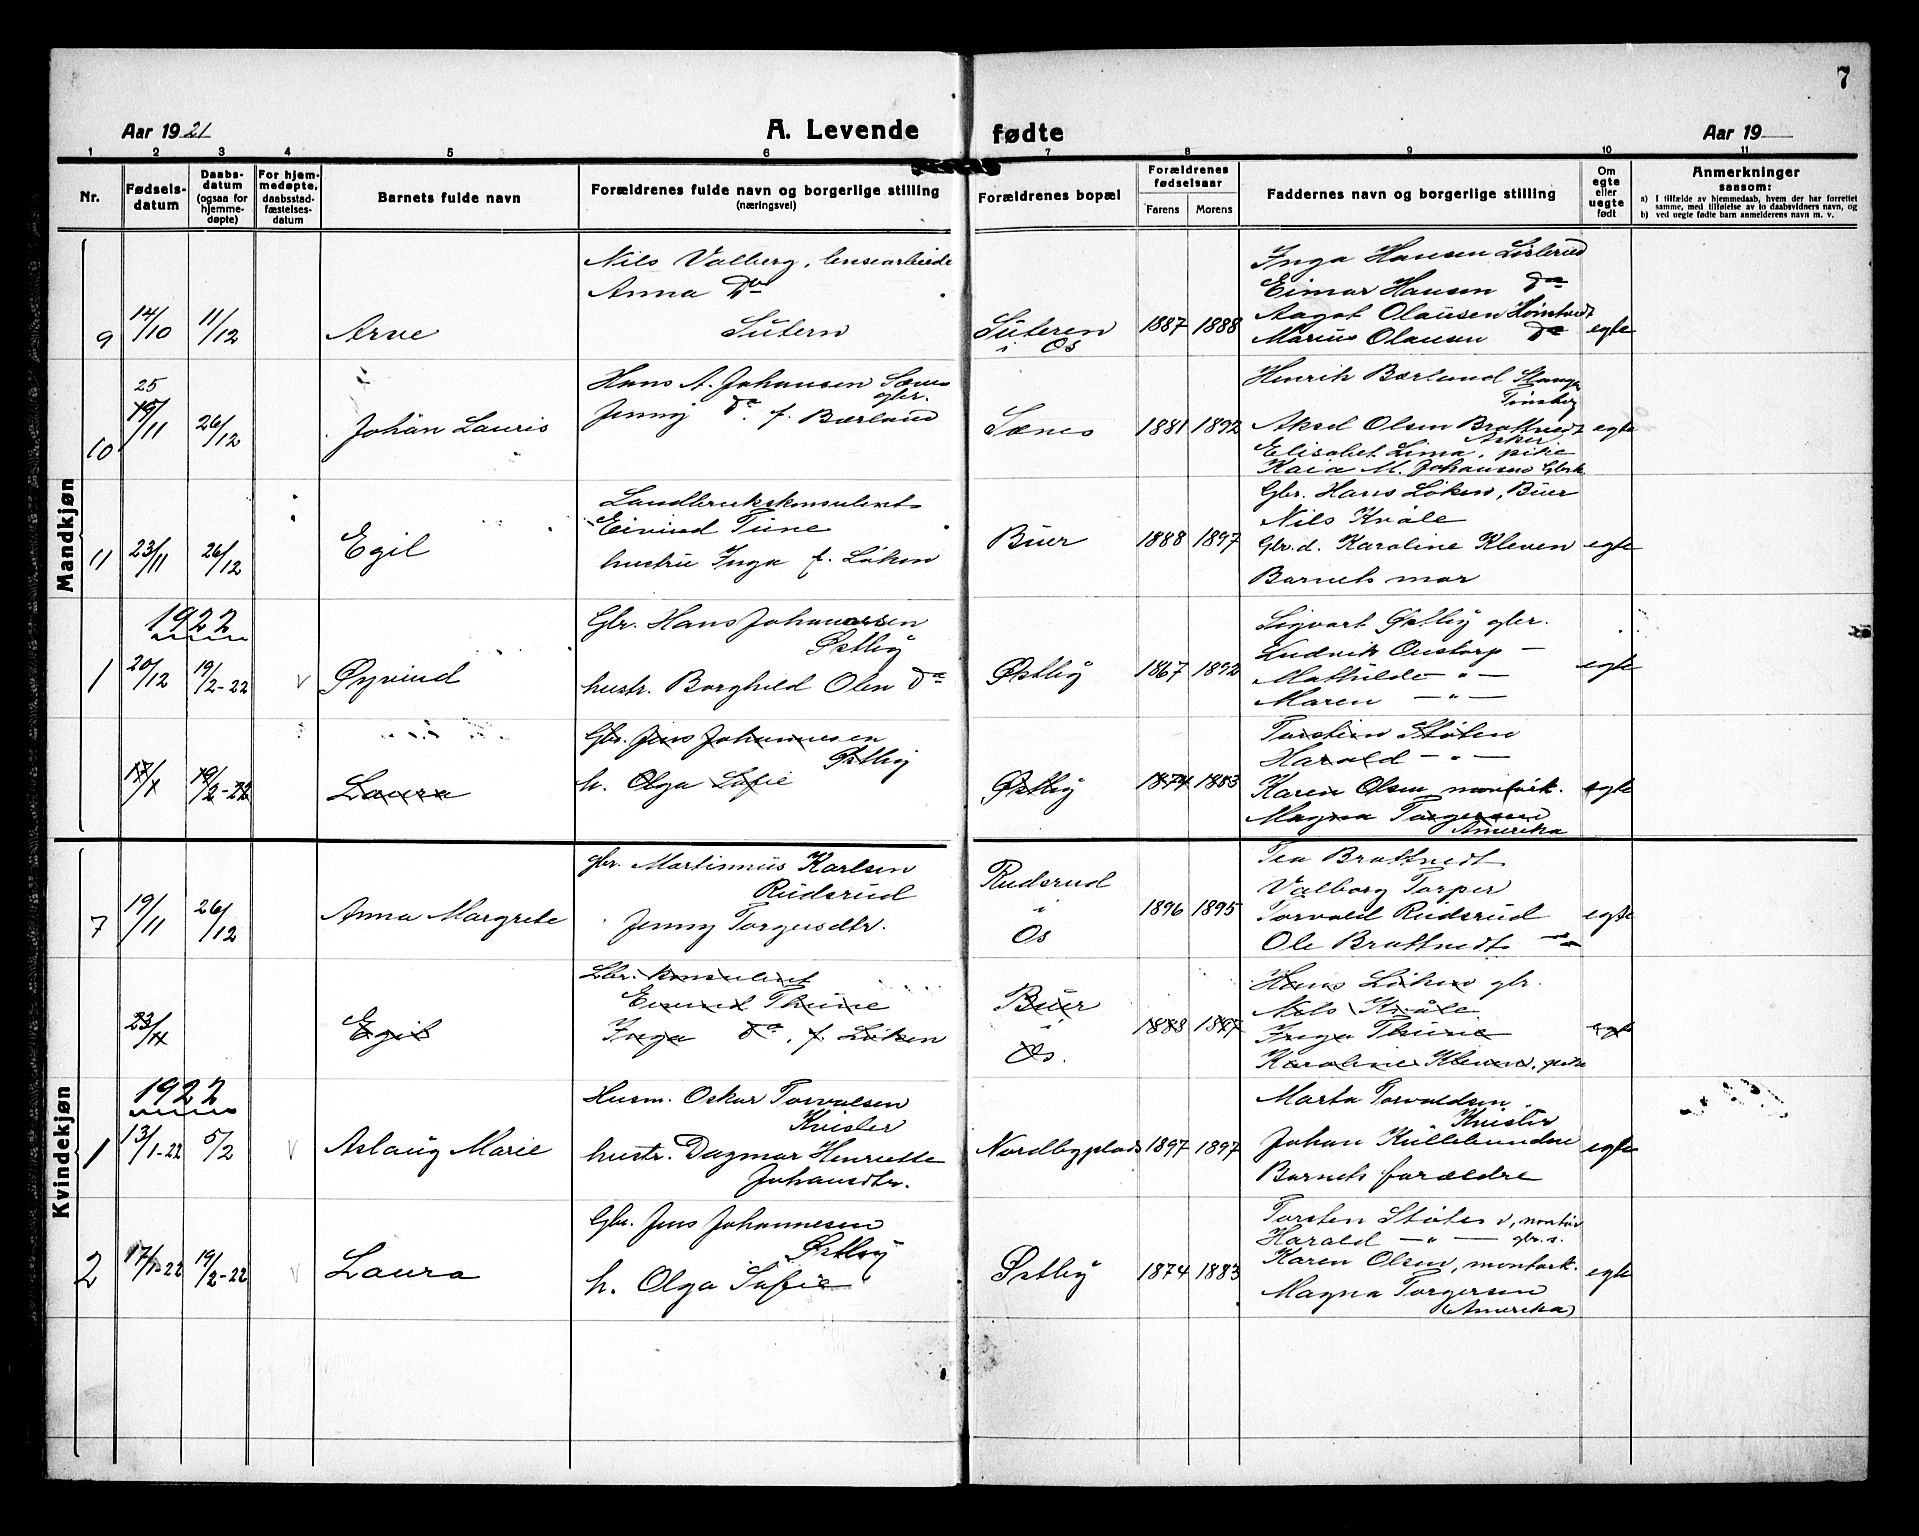 7
Aar 1921 A. Levende fødte Aar 19
1 2 3 4 5 6 7 8 9 10 11
Nr.
Fødsels-
datum
Daabs-
datum
(ogsaa for
hjemme-
døpte)
For hjem-
medøpte,
daabsstad-
fæstelses-
datum
Barnets fulde navn
Forældrenes fulde navn og borgerlige stilling
(næringsvei)
Forældrenes bopæl
Forældrenes
fødselsaar
Farens Morens
Faddernes navn og borgerlige stilling
Om
egte
eller
uegte
født
Anmerkninger
saasom:
a) I tilfælde av hjemmedaab, hvem der har forrettet
samme, med tilføielse av to daabsvidners navn, og
b) ved uegte fødte barn anmelderens navn m. v.
Mandkjøn
9 14/10 11/12 Arve
Nils Valberg, lensearbeide
Anna Do
Sutern
Suteren
i Os
1887 1888
Inga Hansen Listerud
Eimar Hansen Do
Aagot Olausen
Marius Olausen Do
egte
10 25/11 26/12 Johan Lauris
Hans A. Johansen Sænes
gbr.
Jenny Do f. Bærland
Sænes
1881 1892
Henrik Bærland
Tønsberg
Aksel Olsen Brattvedt
Asker
Elisabet Lima, pike
Kaia M. Johansen
egte
11 23/11 26/12 Egil
Landbrukskonsulent
Eivind Tune
hustru Inga f. Løken
Buer
1888 1897
Gbr. Hans Løken, Buer
Nils Kvåle
Gbr.d. Karoline Kleven
Barnets mor
egte
1922
1 20/12 19/2-22 v Øyvind
Gbr. Hans Johannesen
Østby
hustr. Borghild Olen Do
Østby
1867 1892
Sigvart Østby gbr.
Ludvik Oustorp —
Mathilde — " —
Maren — " —
egte
17/1 19/2-22 Laura
Gbr. Jens Johannesen
Østby
h. Olga Sofie
Østby
1874 1883
Torstein Støten
Harald — " —
Karen Olsen montørk.
Magna Torgersen
Amerika
egte
Kvindekjøn
7 19/11 26/12 Anna Margrete
gbr. Martinnius Karlsen
Rudsrud
Jenny Torgersdtr.
Rudsrud
i
Os
1896 1895
Tea Brattvedt
Valborg Torper
Torvald Rudsrud
Ole Brattvedt
egte
23/11 Egil
Lbr. konsulent
Eivind Thune
Inga Do, f. Løken
Buer
i
Os.
1888 1897
Hans Løken gbr.
Nils Kvåle
Inga Thune
Karoline Kleven, pike
egte
1922
1 13/1-22 5/2 v Aslaug Marie
Husm. Oskar Torvalsen
Knisler
hustr. Dagmar Henriette
Johansdtr.
Nordbyplads
1897 1897
Marta Torvaldsen
Knisler
Johan Kullebunden
Barnets forældre
egte
2 17/1-22 19/2-22 v Laura
Gbr. Jens Johannesen
Østby
h. Olga Sofie
Østby
1874 1883
Torsten Støten, montør
Harald — " — gbr.s.
Karen Olsen, montørk.
Magna Torgersen
(Amerika)
egte